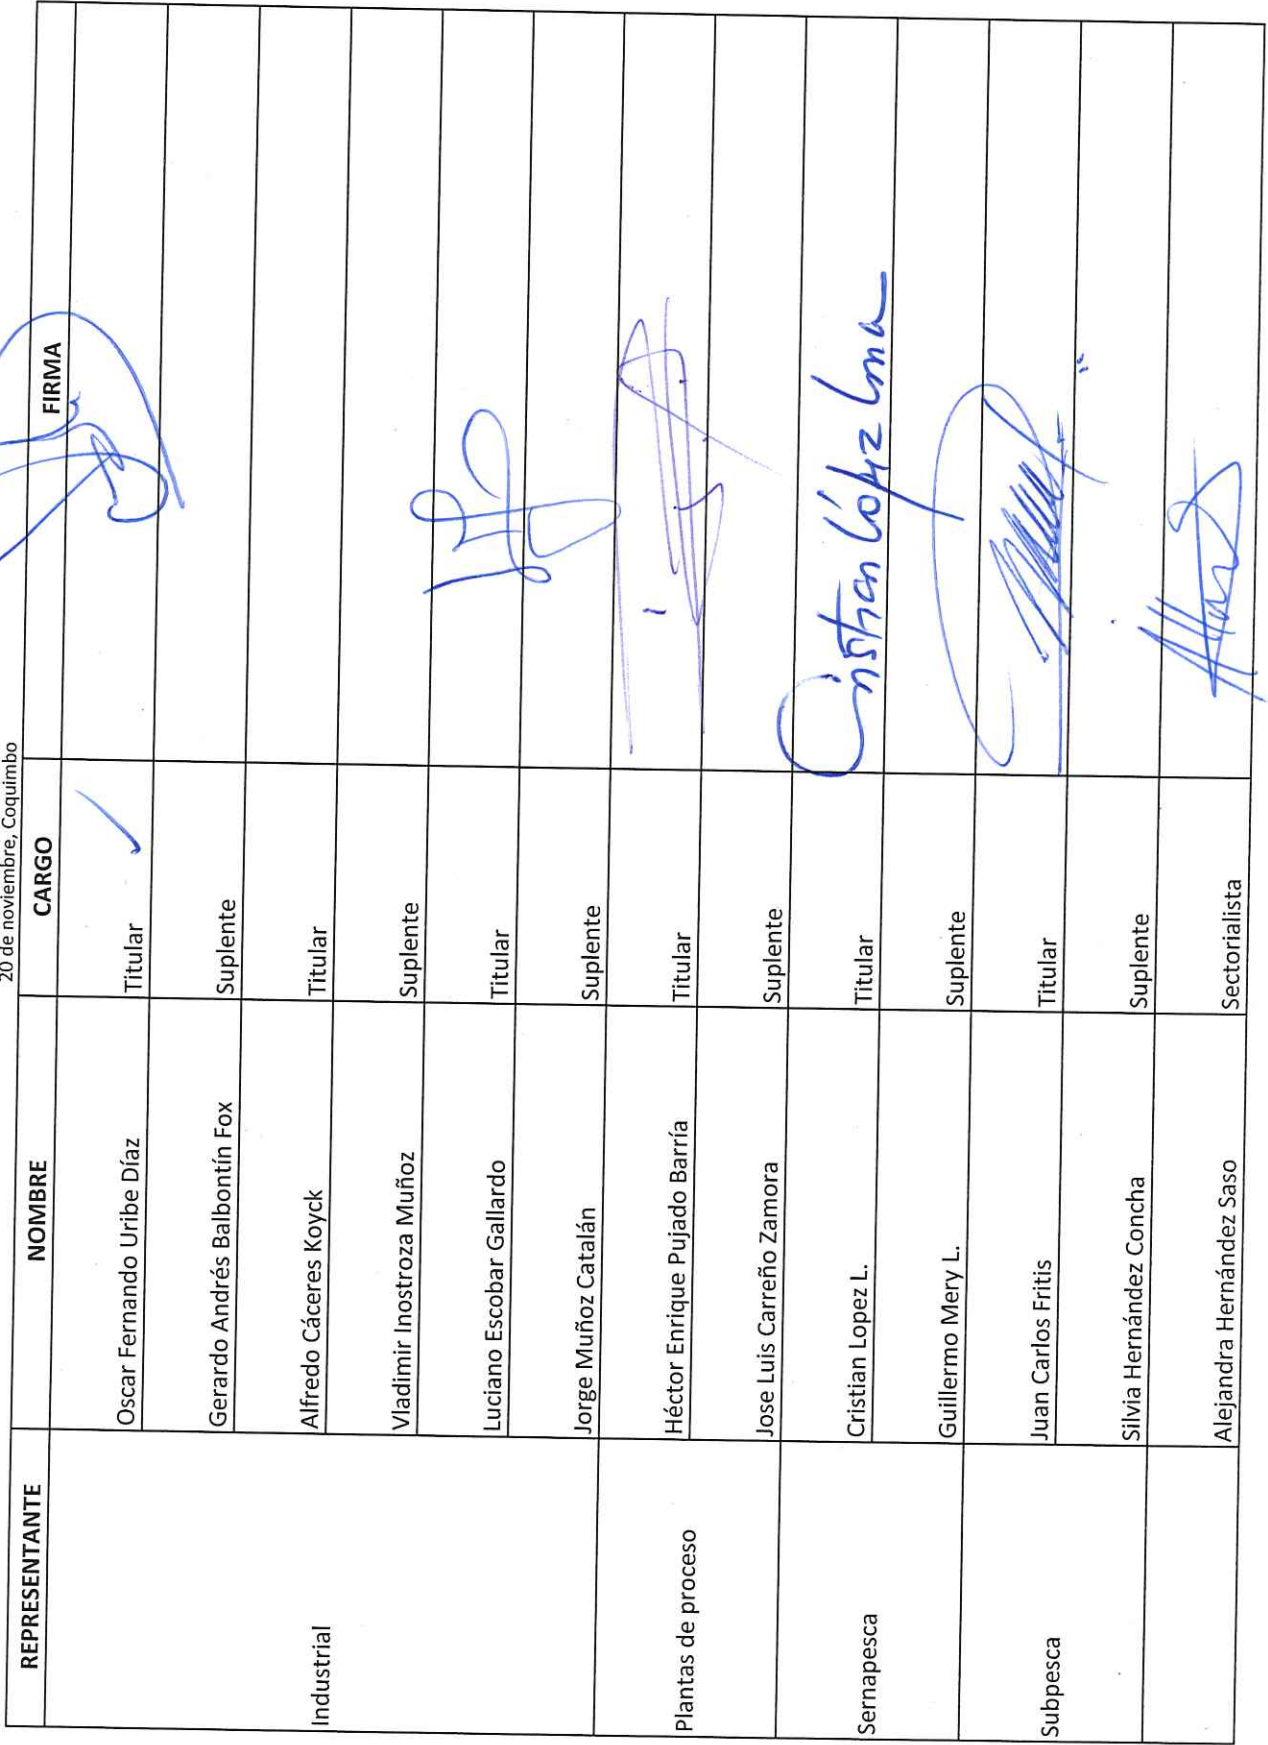 20 de noviembre, Coquimbo
REPRESENTANTE NOMBRE CARGO FIRMA
Industrial
Oscar Fernando Uribe Díaz Titular
Gerardo Andrés Balbontín Fox Suplente
Alfredo Cáceres Koyck Titular
Vladimir Inostroza Muñoz Suplente
Luciano Escobar Gallardo Titular
Jorge Muñoz Catalán Suplente
Plantas de proceso
Héctor Enrique Pujado Barría Titular
Jose Luis Carreño Zamora Suplente
Sernapesca
Cristian Lopez L. Titular Cristian López
Guillermo Mery L. Suplente
Subpesca
Juan Carlos Fritis Titular
Silvia Hernández Concha Suplente
Alejandra Hernández Saso Sectorialista